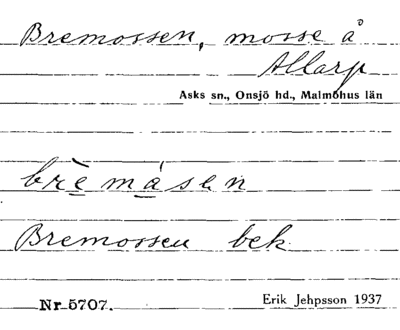 Bremossen, mosse å
Allarp
Asks sn., Onsjö hd., Malmöhus län
brè̠må̠sen
Bremossen bek.
Nr 5707.
Erik Jehpsson 1937